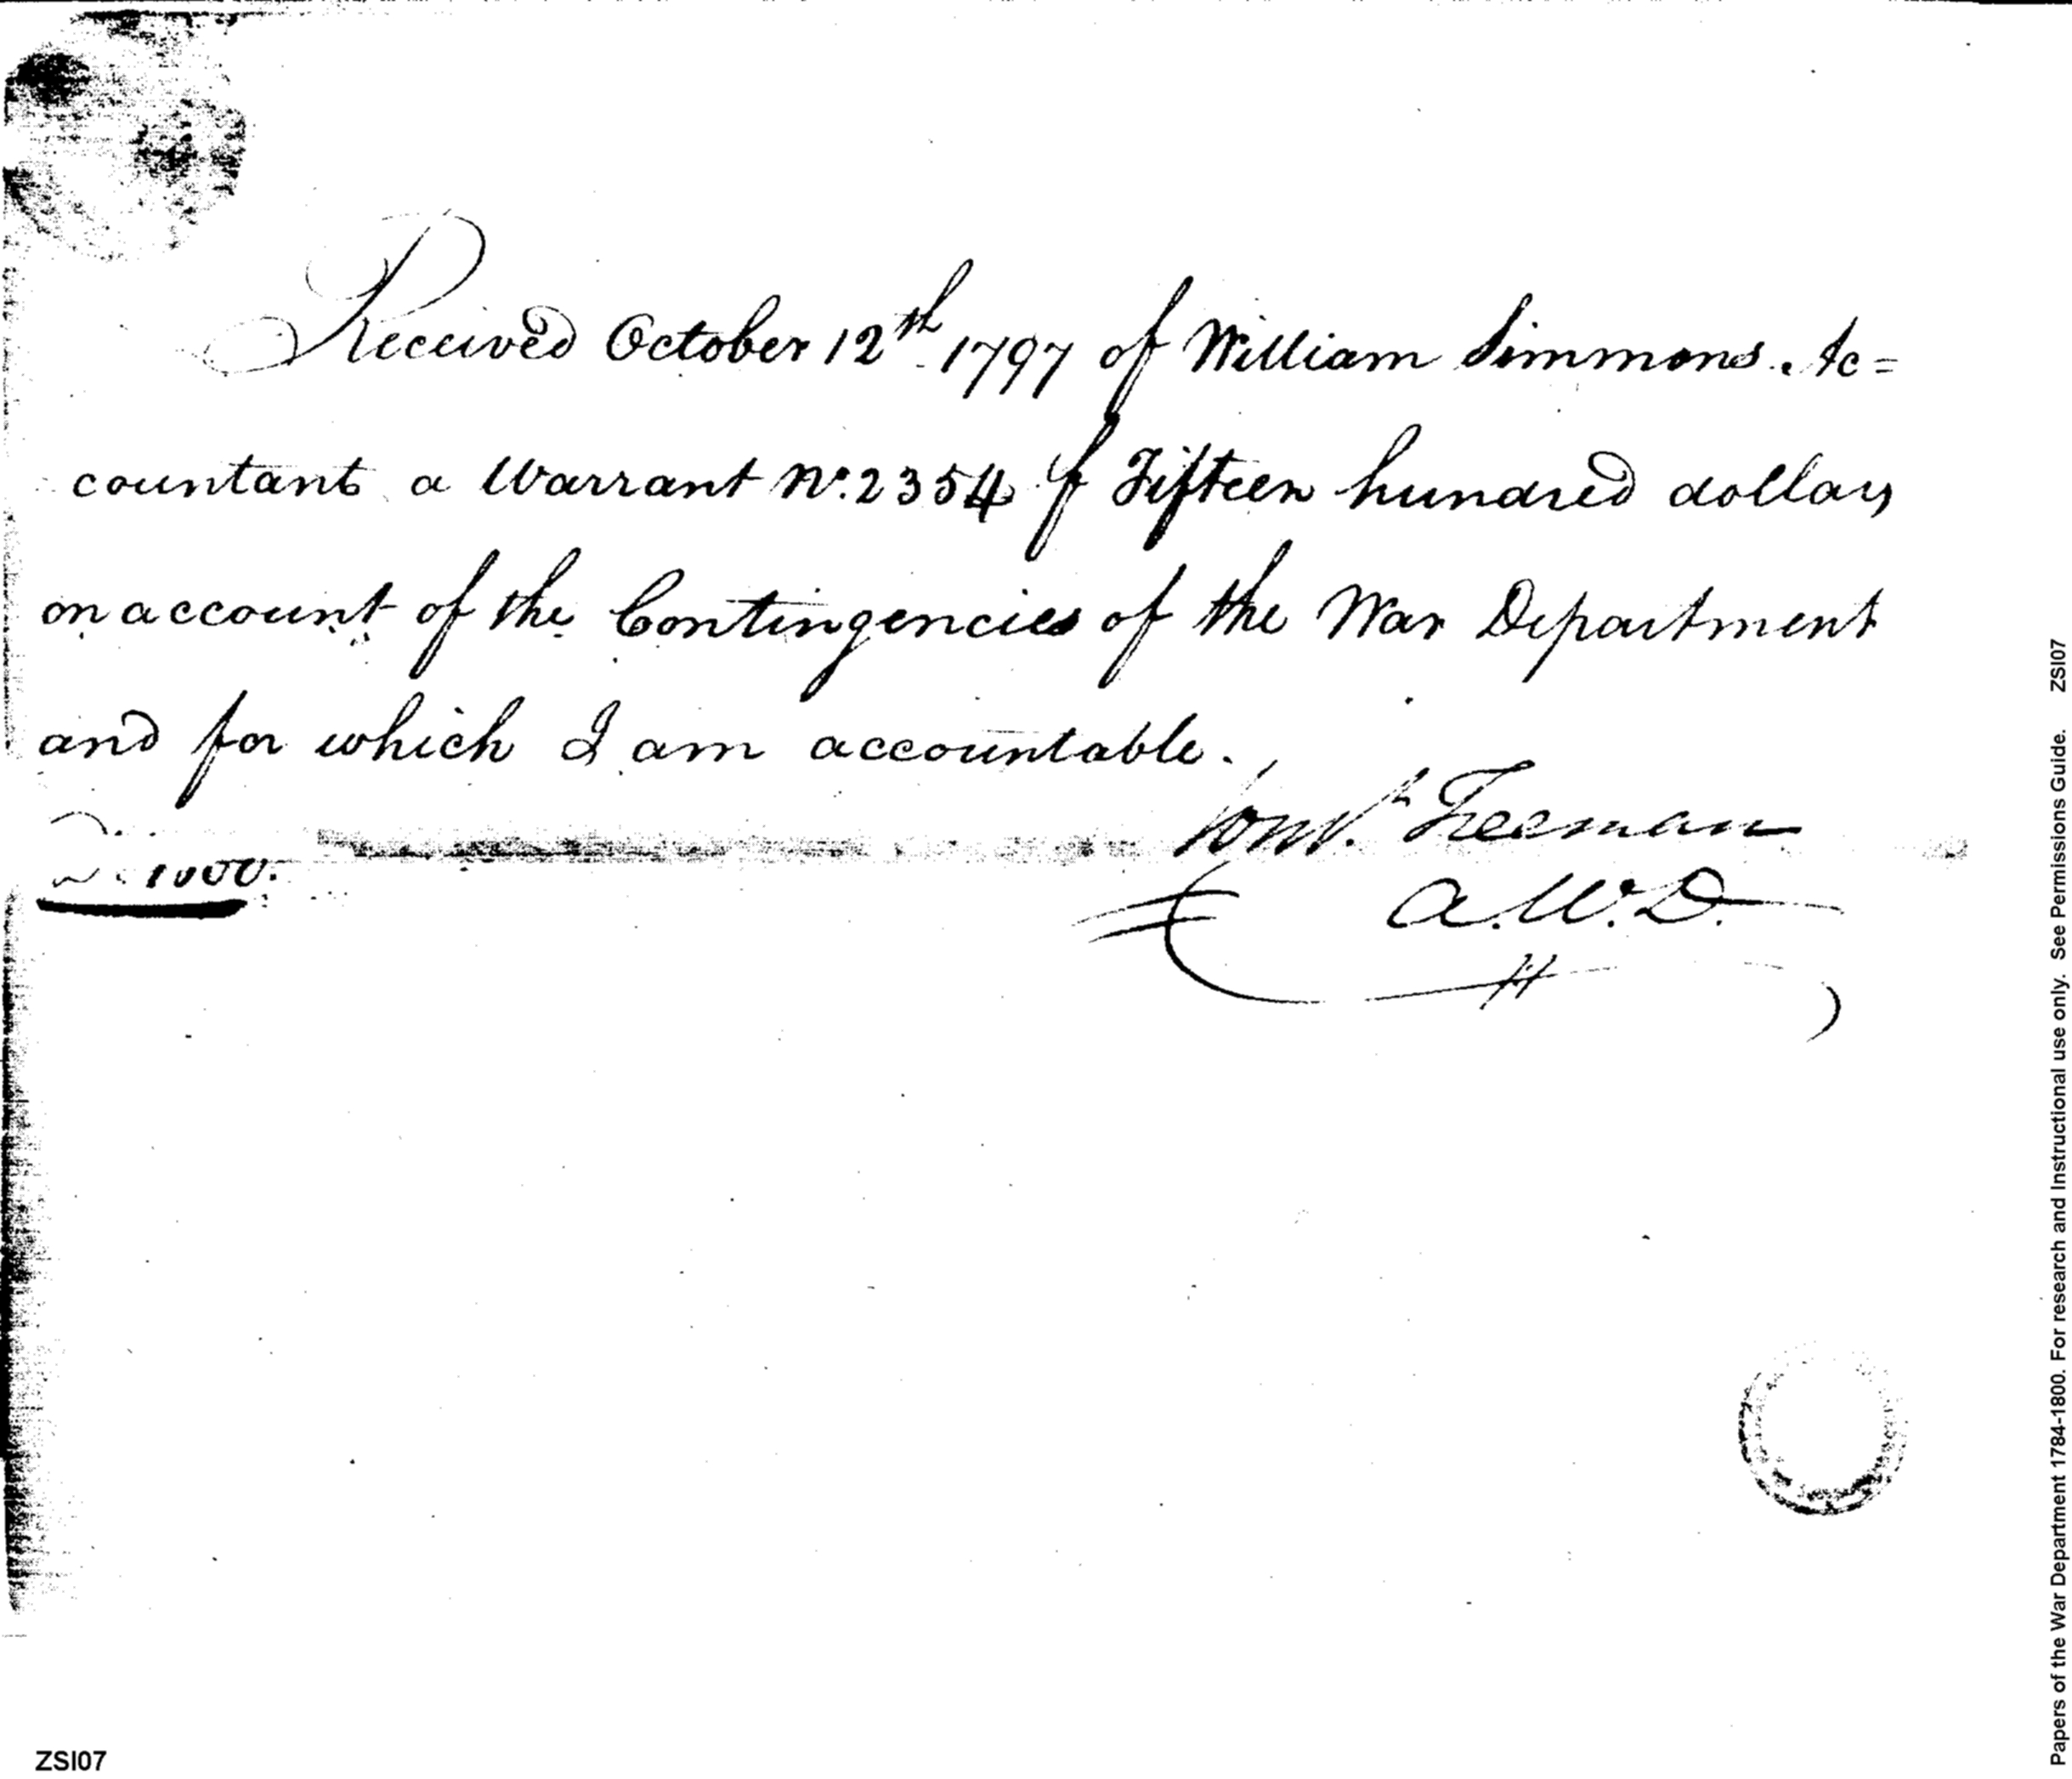 Received October 12th 1797 of William Simmons Ac=
countant a Warrant No. 2354 f Fifteen hundred dollars
on account of the Contingencies of the War Department
and for which I am accountable.
Freeman
A.W.D.
ZSI07
Papers of the War Department 1784-1800. For research and Instructional use only. See Permissions Guide. ZSI07